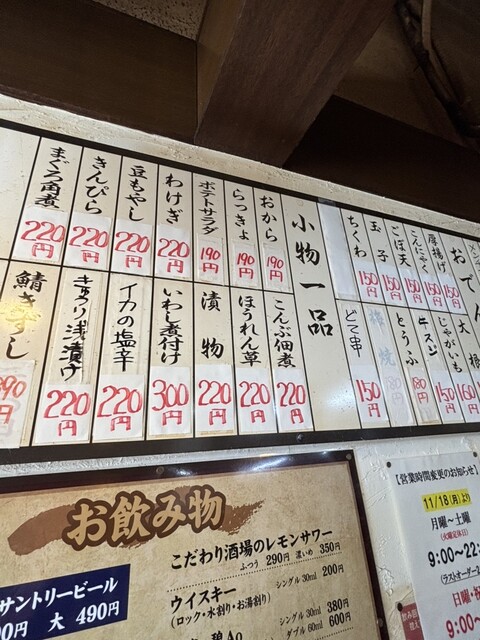 おでん
厚揚げ 150円
こんにゃく 150円
ごぼ天 150円
玉子 150円
ちくわ 150円
大根 160円
じゃがいも 150円
牛スジ 180円
とうふ 180円
どて串 150円
小物一品
おから 190円
らっきょ 190円
ポテトサラダ 190円
わけぎ 220円
豆もやし 220円
きんぴら 220円
まぐろ角煮 220円
こんぶ佃煮 220円
ほうれん草 220円
漬物 220円
いわし煮付け 300円
イカの塩辛 220円
きゅうり浅漬け 220円
鯖きずし
お飲み物
こだわり酒場のレモンサワー
ふつう 290円 濃いめ 350円
サントリービール
大 490円
ウイスキー シングル30ml 200円
(ロック・水割り・お湯割り)
碧Ao シングル30ml 380円
ダブル60ml 600円
【営業時間変更のお知らせ】
11/18(月)より
月曜～土曜
(火曜定休日)
9:00～22:
(ラストオーダー
日曜・祝
9:00～